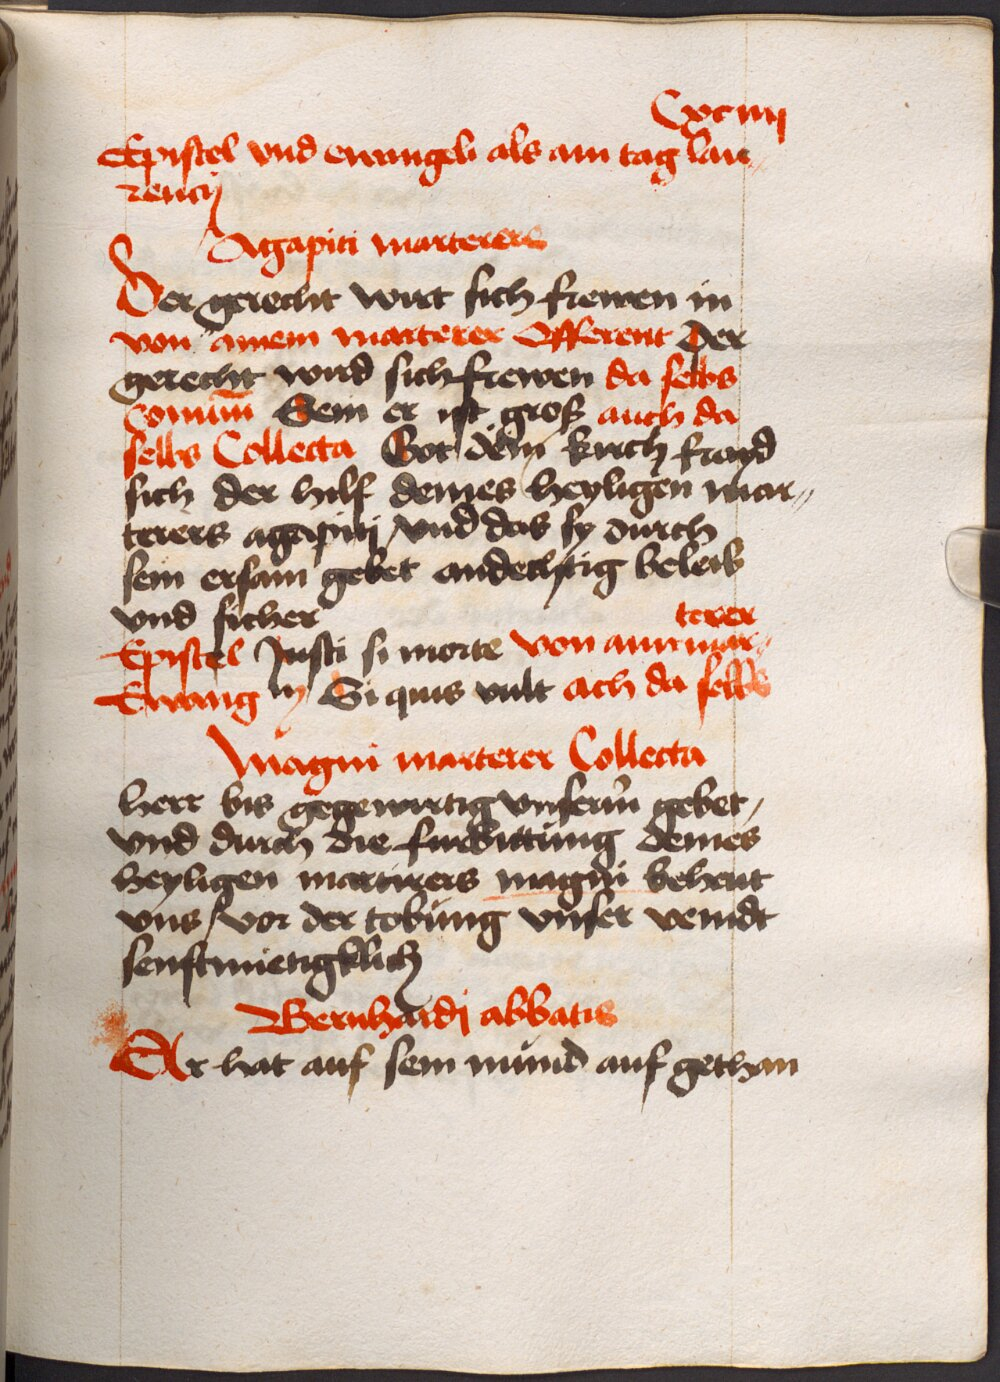 Cxciiij
Epistel vnd ewangeli als am tag lau-
rencij
Agapiti marterers
Der gerecht wirt sich frewen in
von ainem marterer Offerent Der
gerecht wird sich frewen da selbs
Comūn Sein er ist groß auch da
selbs Collecta Got dein kirch frayd
sich der hilf deines heyligen mar-
terers agapitj / vnd das sy durch
sein ersam gebet andechtig beleib
vnd sicher
terer
Epistel Justi si morte von aim mar-
Ewang ij Si quis vult ach da selbs
Magni marterer Collecta
herr bis gegewirtig vnserm gebet /
vnd durch die furbittung deines
heyligen martirers magni beheut
vns / vor der tobung vnser veindt
senftmietigklich
Bernhardj abbatis
Er hat auf sein mund auf gethan